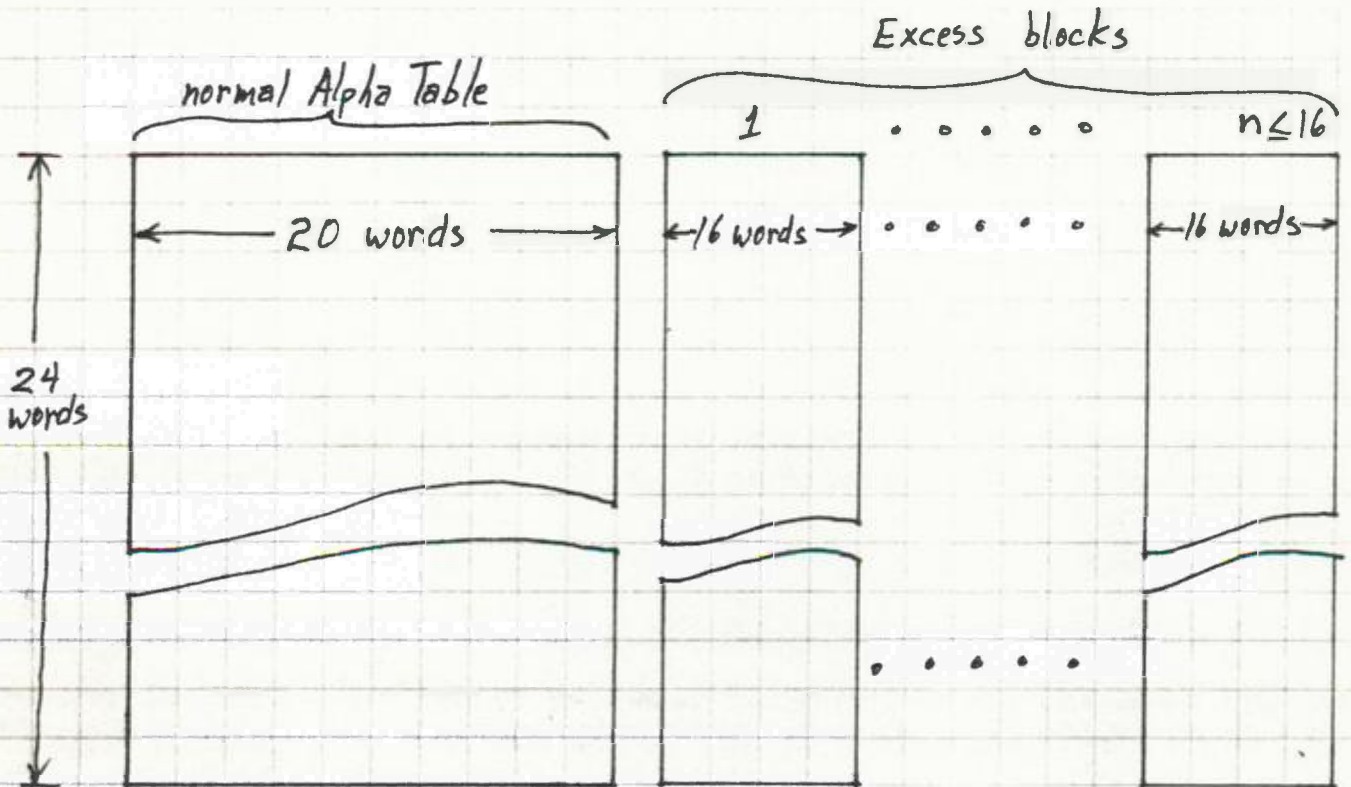 Excess blocks
normal Alpha Table
1 . . . . . n≤16
20 words
16 words . . . . . 16 words
24
words
. . . . .